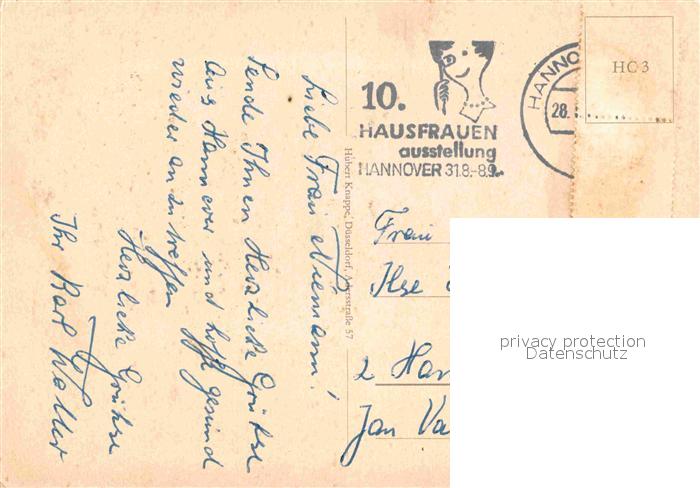 Liebe Frau Niemann!
Sende Ihnen Herzliche Grüsse
Aus Hannover und hoffe gesund
wieder an zu treffen
Herzliche Grüsse
Ihr Karl Walter
Hubert Knappe, Düsseldorf, 57
10.
HAUSFRAUEN
ausstellung
HANNOVER 31.8.-8.9.
HANNO
28.
HC 3
Frau
Ilse
2 Ham
Jan Va
privacy protection
Datenschutz